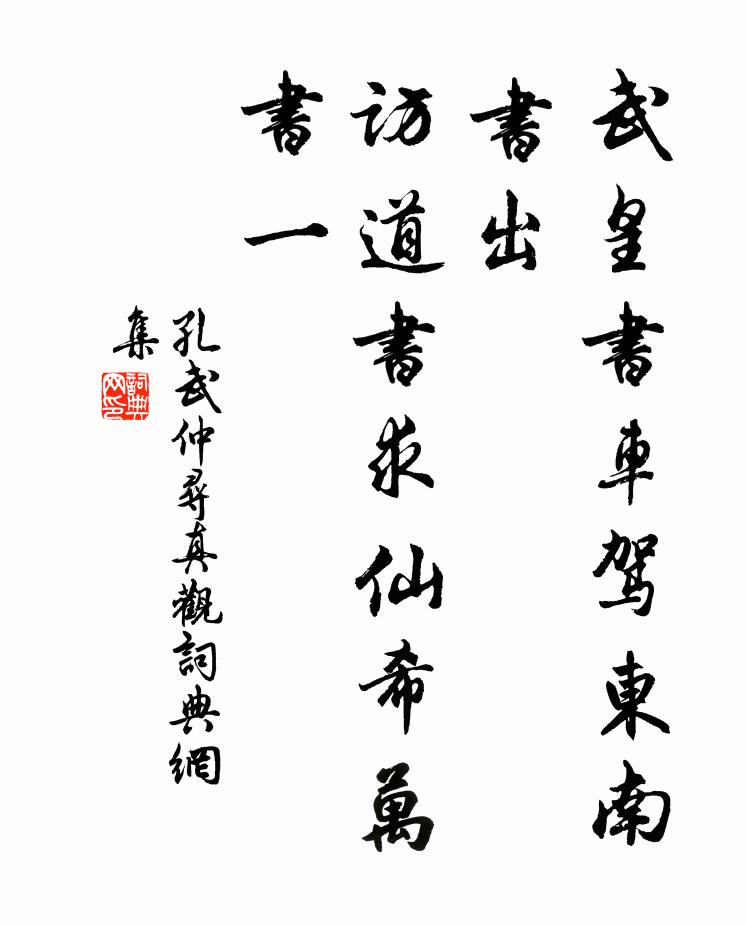 武皇書車駕東南
書出
訪道書求仙希萬
書一
孔武仲尋真觀詞典網
集
詞典
网印